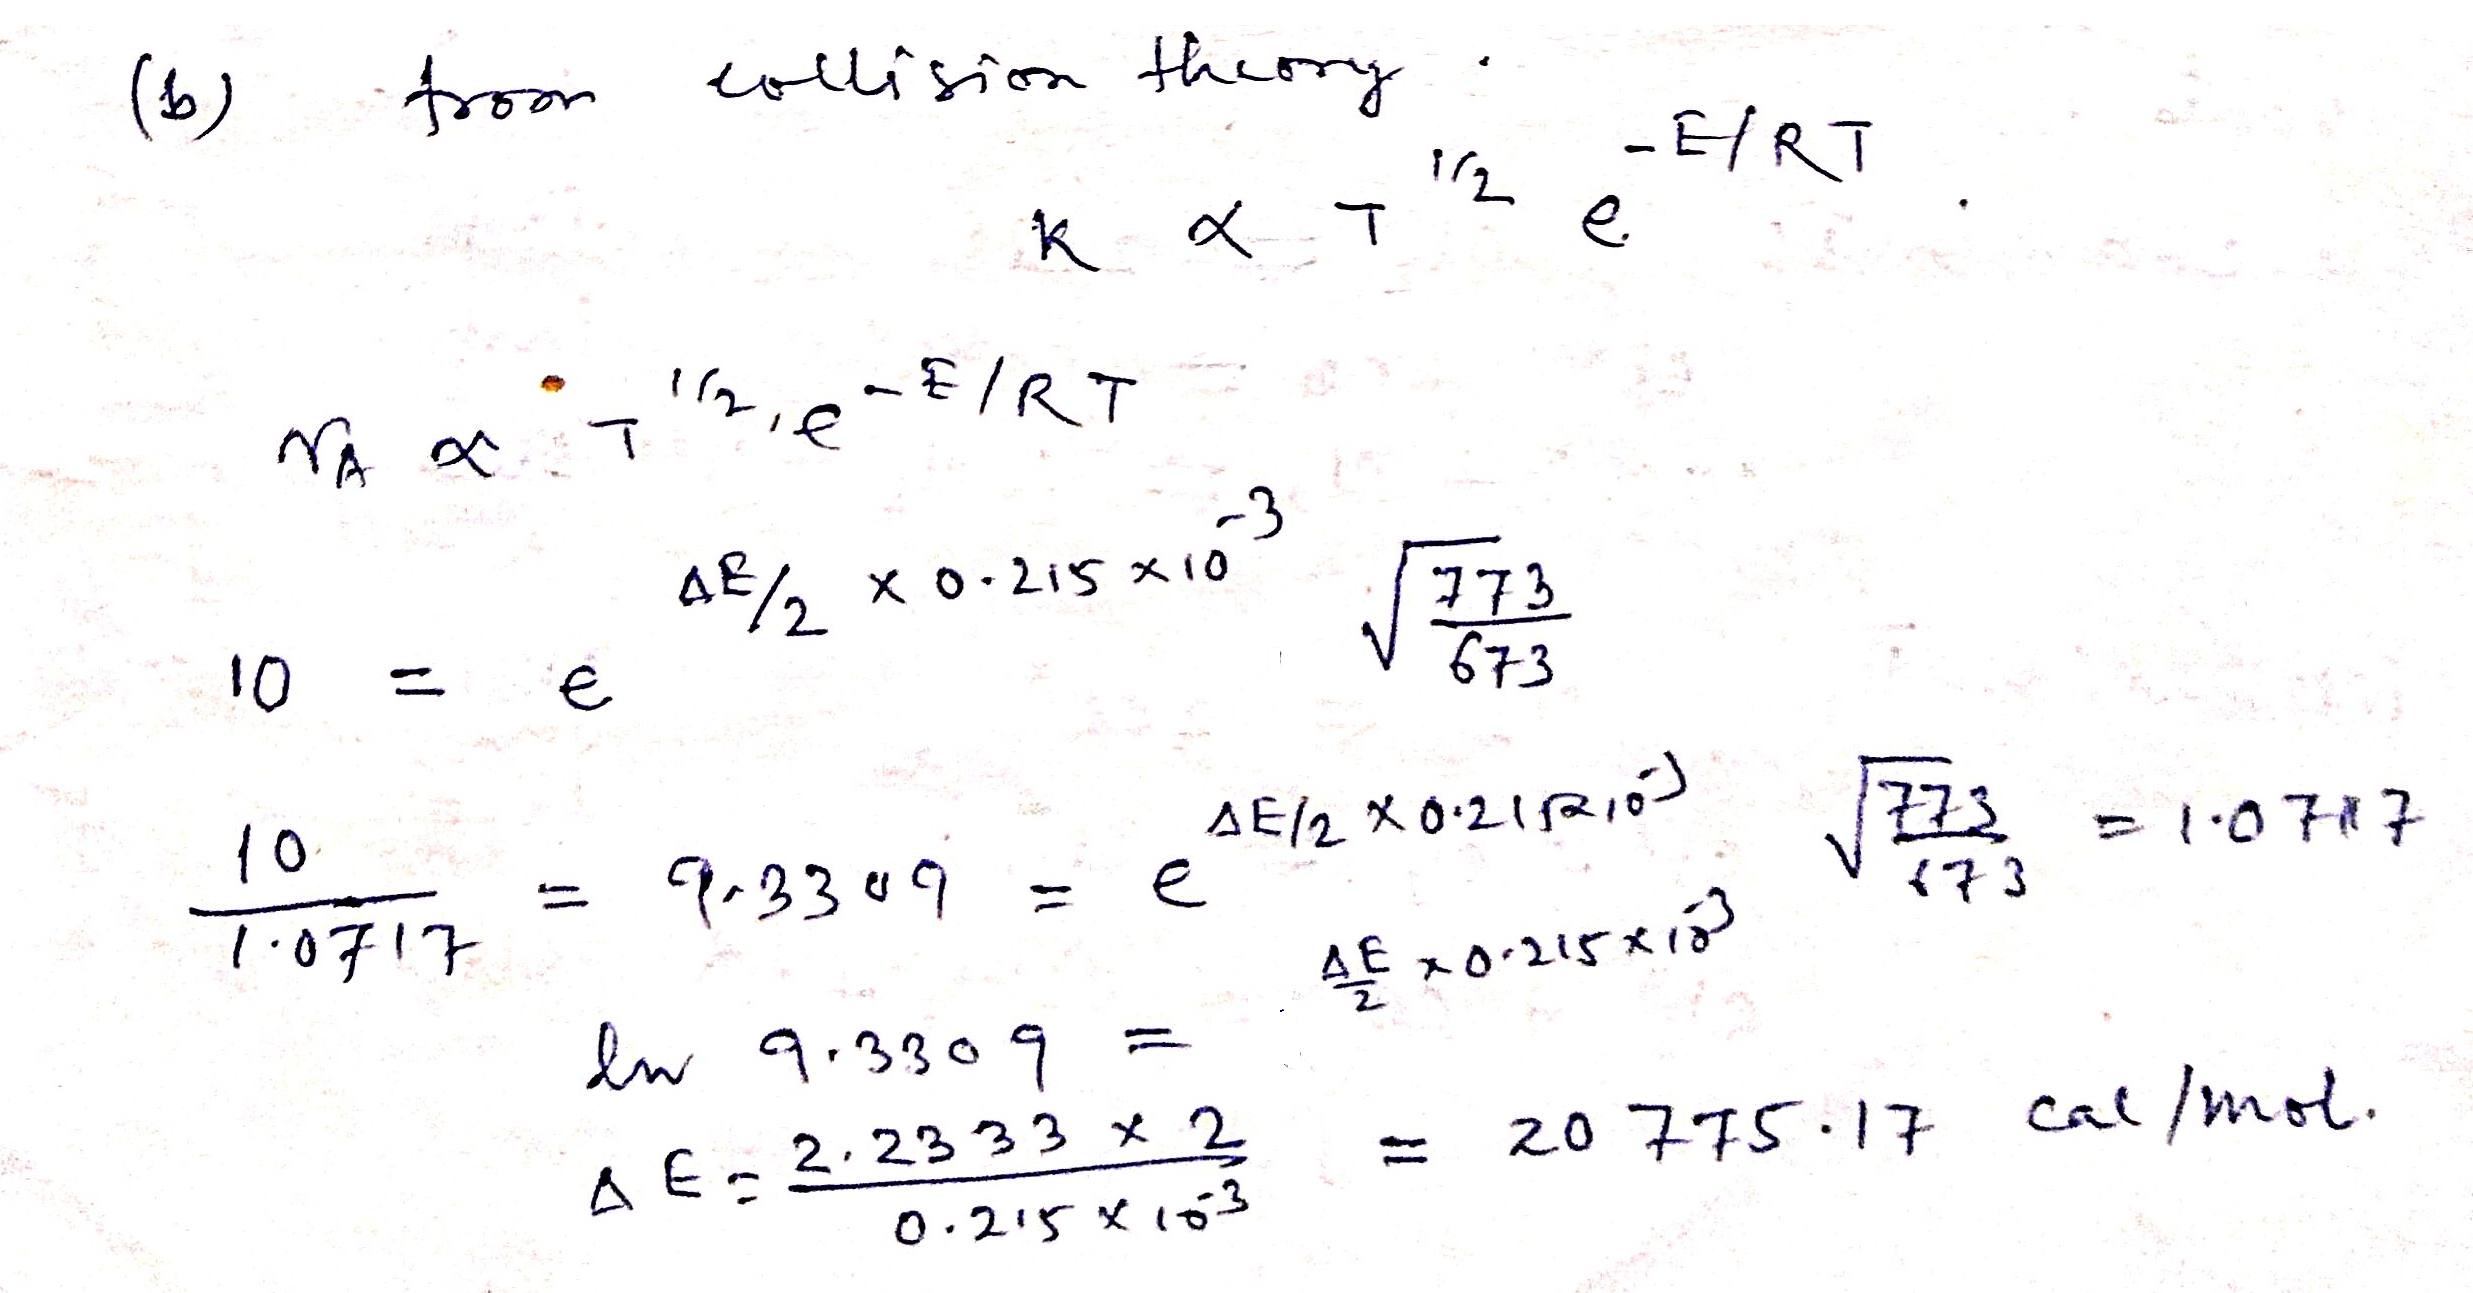 (b) from collision theory.
K ∝ T^{1/2} e^{-E/RT}.
r_A ∝ T^{1/2}, e^{-E/RT}
10 = e^{ΔE/2 × 0.215 × 10^{-3}} √(773/673)
10/1.0717 = 9.3309 = e^{ΔE/2 × 0.215 × 10^{-3}} √(773/673) = 1.0717
ln 9.3309 = ΔE/2 × 0.215 × 10^{-3}
ΔE = (2.2333 × 2)/(0.215 × 10^{-3}) = 20775.17 cal/mol.